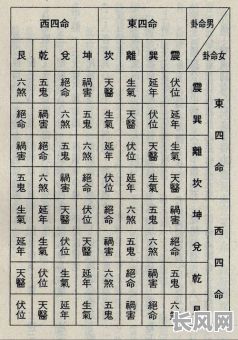 西四命 東四命 卦命男
卦命女
艮 乾 兌 坤 坎 離 巽 震
六煞 五鬼 絕命 禍害 天醫 生氣 延年 伏位 震 東四命
絕命 禍害 六煞 五鬼 生氣 天醫 伏位 延年 巽
禍害 絕命 五鬼 六煞 延年 伏位 天醫 生氣 離
五鬼 六煞 禍害 絕命 伏位 延年 生氣 天醫 坎
生氣 延年 天醫 伏位 絕命 六煞 五鬼 禍害 坤 西四命
延年 生氣 伏位 天醫 禍害 五鬼 六煞 絕命 兌
天醫 伏位 生氣 延年 六煞 絕命 禍害 五鬼 乾
伏位 天醫 延年 生氣 五鬼 禍害 絕命 六煞 艮
长风网